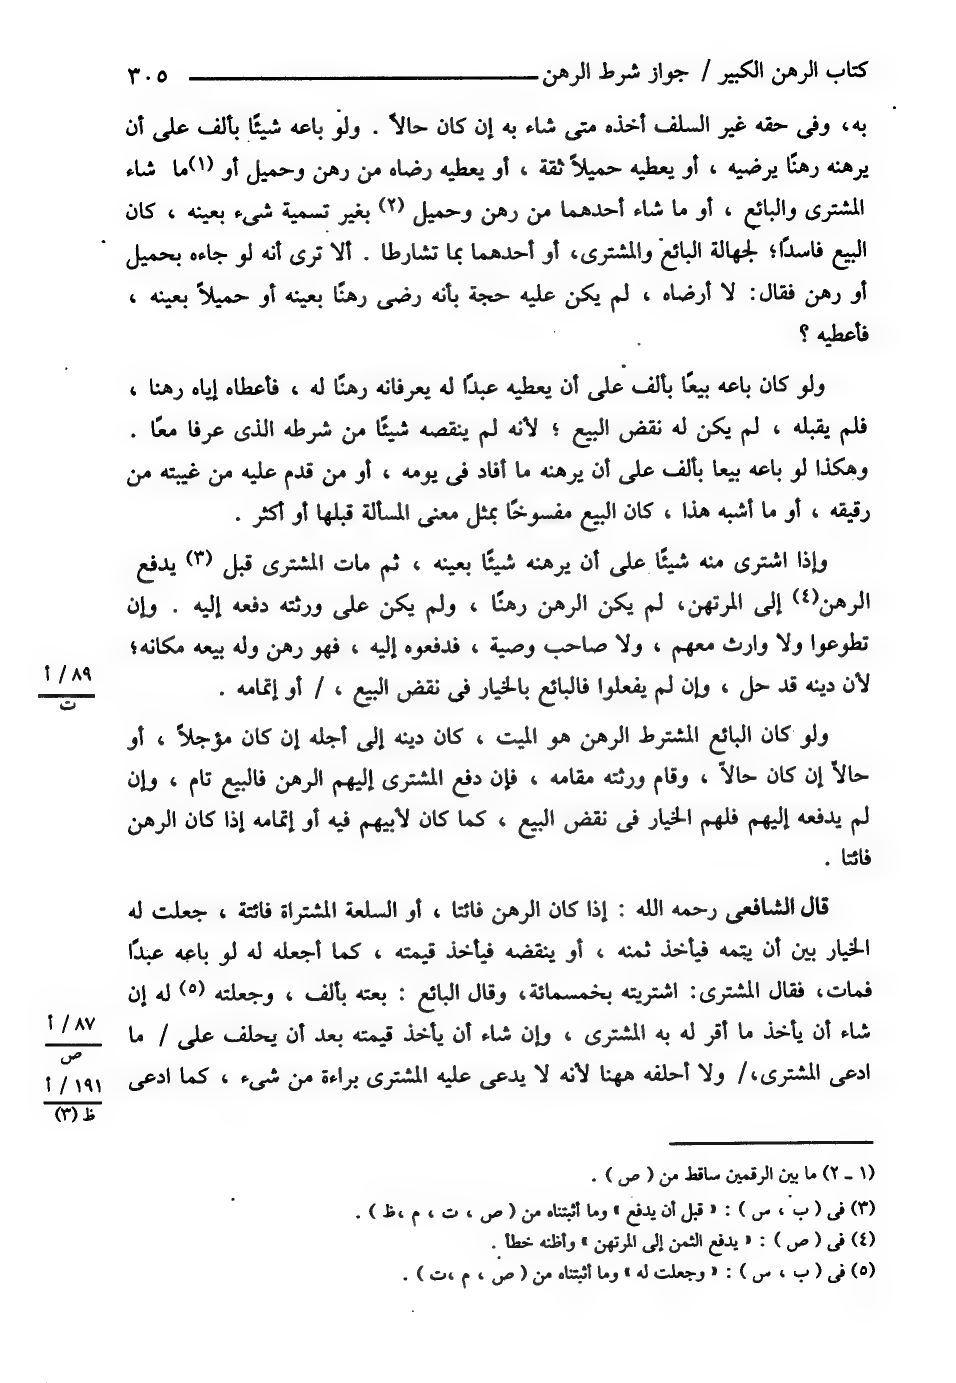 كتاب الرهن الكبير / جواز شرط الرهن ٣٠٥
به، وفى حقه غير السلف أخذه متى شاء به إن كان حالاً . ولو باعه شيئًا بألف على أن
يرهنه رهنًا يرضيه ، أو يعطيه حميلاً ثقة ، أو يعطيه رضاه من رهن وحميل أو (١)ما شاء
المشترى والبائع ، أو ما شاء أحدهما من رهن وحميل (٢) بغير تسمية شىء بعينه ، كان
البيع فاسدًا؛ لجهالة البائع والمشترى، أو أحدهما بما تشارطا . ألا ترى أنه لو جاءه بحميل
أو رهن فقال: لا أرضاه ، لم يكن عليه حجة بأنه رضى رهنًا بعينه أو حميلاً بعينه ،
فأعطيه ؟
ولو كان باعه بيعًا بألف على أن يعطيه عبدًا له يعرفانه رهنًا له ، فأعطاه إياه رهنا ،
فلم يقبله ، لم يكن له نقض البيع ؛ لأنه لم ينقصه شيئًا من شرطه الذى عرفا معًا .
وهكذا لو باعه بيعا بألف على أن يرهنه ما أفاد فى يومه ، أو من قدم عليه من غيبته من
رقيقه ، أو ما أشبه هذا ، كان البيع مفسوخًا بمثل معنى المسألة قبلها أو أكثر .
وإذا اشترى منه شيئًا على أن يرهنه شيئًا بعينه ، ثم مات المشترى قبل (٣) يدفع
الرهن(٤) إلى المرتهن، لم يكن الرهن رهنًا ، ولم يكن على ورثته دفعه إليه . وإن
تطوعوا ولا وارث معهم ، ولا صاحب وصية ، فدفعوه إليه ، فهو رهن وله بيعه مكانه؛
لأن دينه قد حل ، وإن لم يفعلوا فالبائع بالخيار فى نقض البيع ، / أو إتمامه .
٨٩ / أ
ت
ولو كان البائع المشترط الرهن هو الميت ، كان دينه إلى أجله إن كان مؤجلاً ، أو
حالاً إن كان حالاً ، وقام ورثته مقامه ، فإن دفع المشترى إليهم الرهن فالبيع تام ، وإن
لم يدفعه إليهم فلهم الخيار فى نقض البيع ، كما كان لأبيهم فيه أو إتمامه إذا كان الرهن
فائتا .
قال الشافعى رحمه الله : إذا كان الرهن فائتا ، أو السلعة المشتراة فائتة ، جعلت له
الخيار بين أن يتمه فيأخذ ثمنه ، أو ينقضه فيأخذ قيمته ، كما أجعله له لو باعه عبدًا
فمات، فقال المشترى: اشتريته بخمسمائة، وقال البائع : بعته بألف ، وجعلته (٥) له إن
شاء أن يأخذ ما أقر له به المشترى ، وإن شاء أن يأخذ قيمته بعد أن يحلف على / ما
٨٧ / أ
ص
ادعى المشترى،/ ولا أحلفه ههنا لأنه لا يدعى عليه المشترى براءة من شىء ، كما ادعى
١٩١ / أ
ظ (٣)
(١ ـ ٢) ما بين الرقمين ساقط من ( ص ) .
(٣) فى ( ب ، س ) : « قبل أن يدفع » وما أثبتناه من ( ص ، ت ، م ،ظ ) .
(٤) فى ( ص ) : « يدفع الثمن إلى المرتهن » وأظنه خطأ .
(٥) فى ( ب ، س ) : « وجعلت له » وما أثبتناه من ( ص ، م ،ت ) .